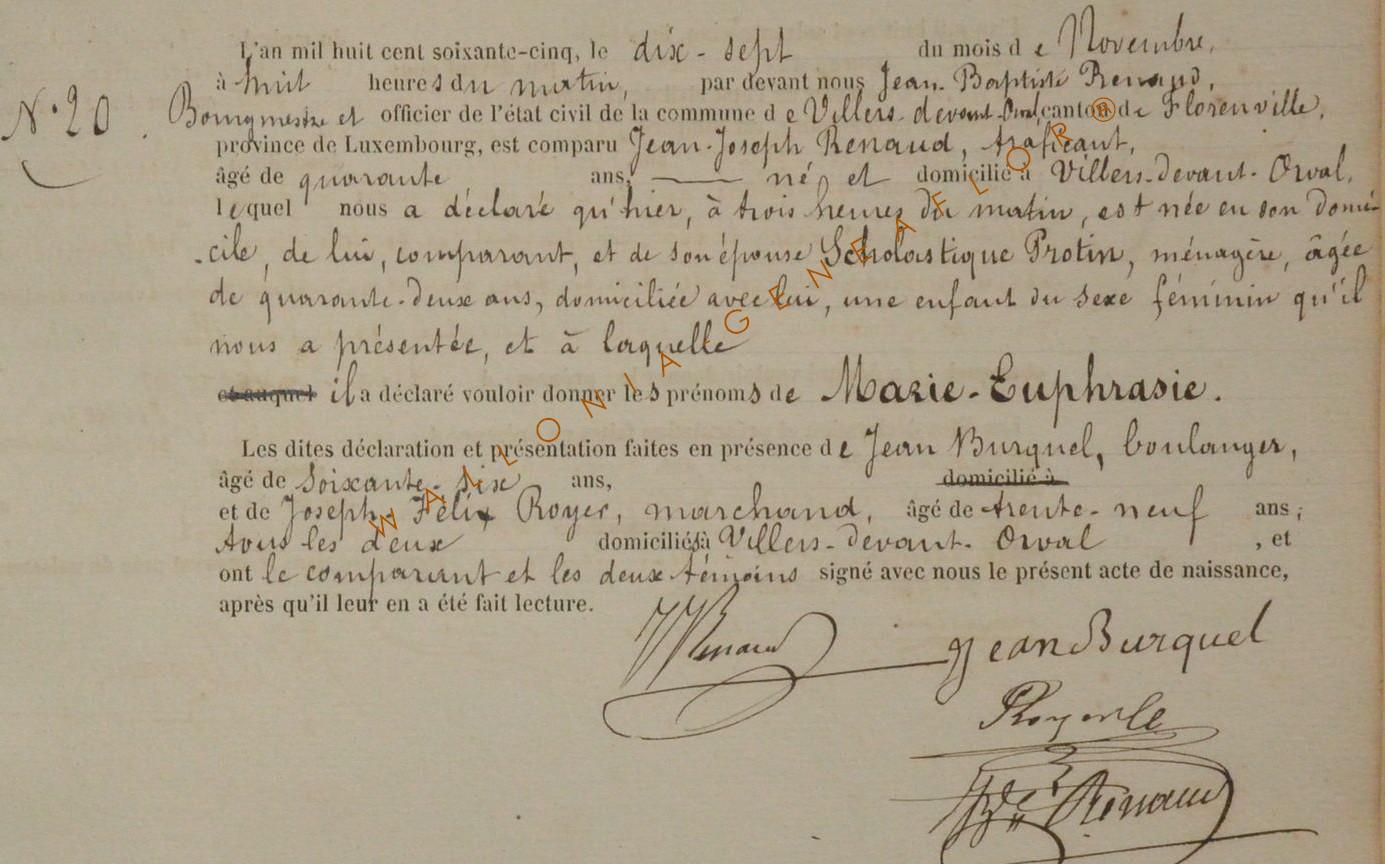 L'an mil huit cent soixante-cinq, le dix-sept du mois de Novembre,
à huit heures du matin, par devant nous Jean-Baptiste Renaud,
N.° 20. Bourgmestre et officier de l'état civil de la commune de Villers-devant-Orval, canton de Florenville,
province de Luxembourg, est comparu Jean-Joseph Renaud, traficant,
âgé de quarante ans, —— né et domicilié à Villers-devant-Orval,
lequel nous a déclaré qu'hier, à trois heures du matin, est née en son domi-
-cile, de lui, comparant, et de son épouse Scholastique Protin, ménagère, âgée
de quarante-deux ans, domiciliée avec lui, une enfant du sexe féminin qu'il
nous a présentée, et à laquelle
et auquel il a déclaré vouloir donner les prénoms de Marie-Euphrasie.
Les dites déclaration et présentation faites en présence de Jean Burquel, boulanger,
âgé de soixante-six ans, domicilié à
et de Joseph-Félix Royer, marchand, âgé de trente-neuf ans;
tous les deux domiciliés à Villers-devant-Orval, et
ont le comparant et les deux témoins signé avec nous le présent acte de naissance,
après qu'il leur en a été fait lecture.
JJRenaud Jean Burquel
Renaud
WALLONIA GENEAFLOR®